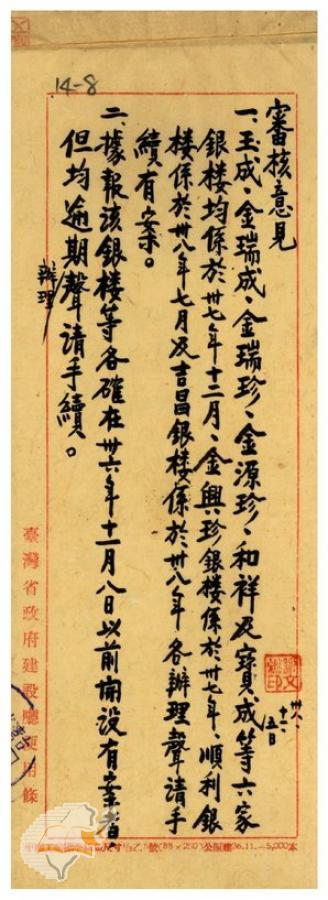 14-8
審核意見
一、玉成、金瑞成、金瑞珍、金源珍、和祥及寶成等六家
銀楼均係於卅七年十二月、金興珍銀楼係於卅七年、順利銀
楼係於卅八年七月及吉昌銀楼係於卅八年各辦理聲請手
續有案。
二、據報該銀楼等各確在卅六年十一月八日以前開設有案者、
但均逾期辦理聲請手續。
卅八、十二、五日
臺灣省政府建設廳便用條